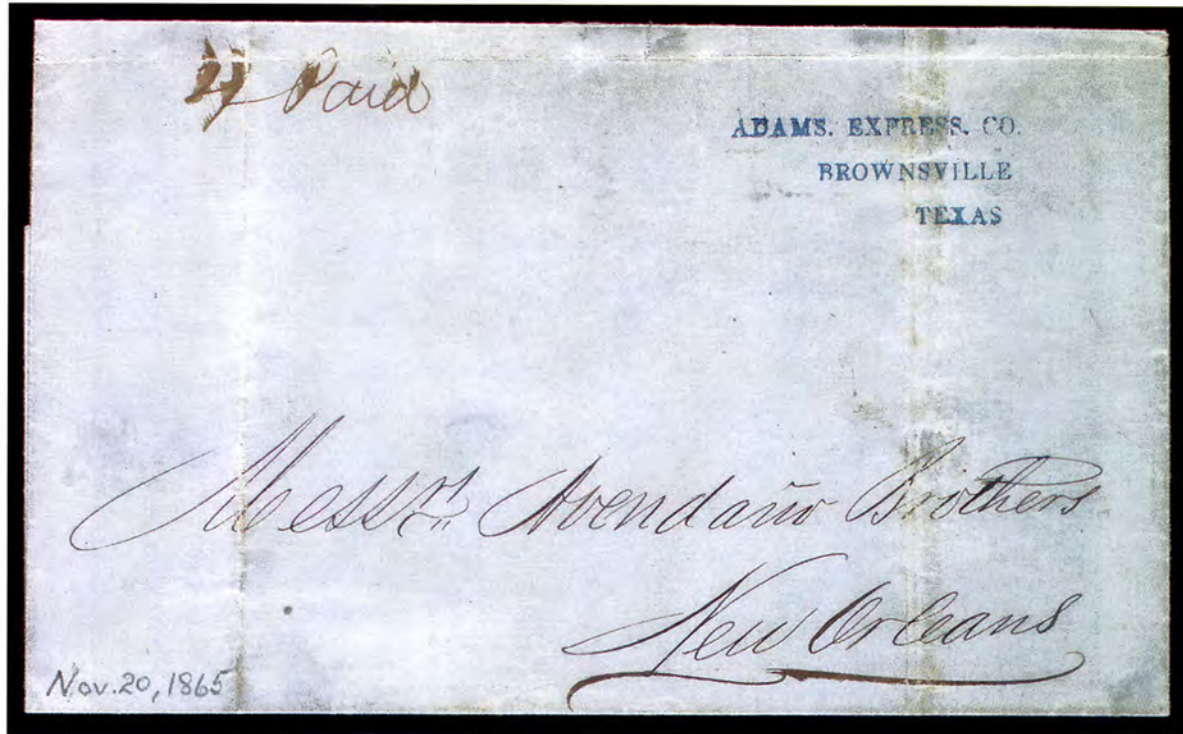 Paid
ADAMS. EXPRESS. CO.
BROWNSVILLE
TEXAS
Messrs. Avendaño Brothers
New Orleans
Nov. 20, 1865